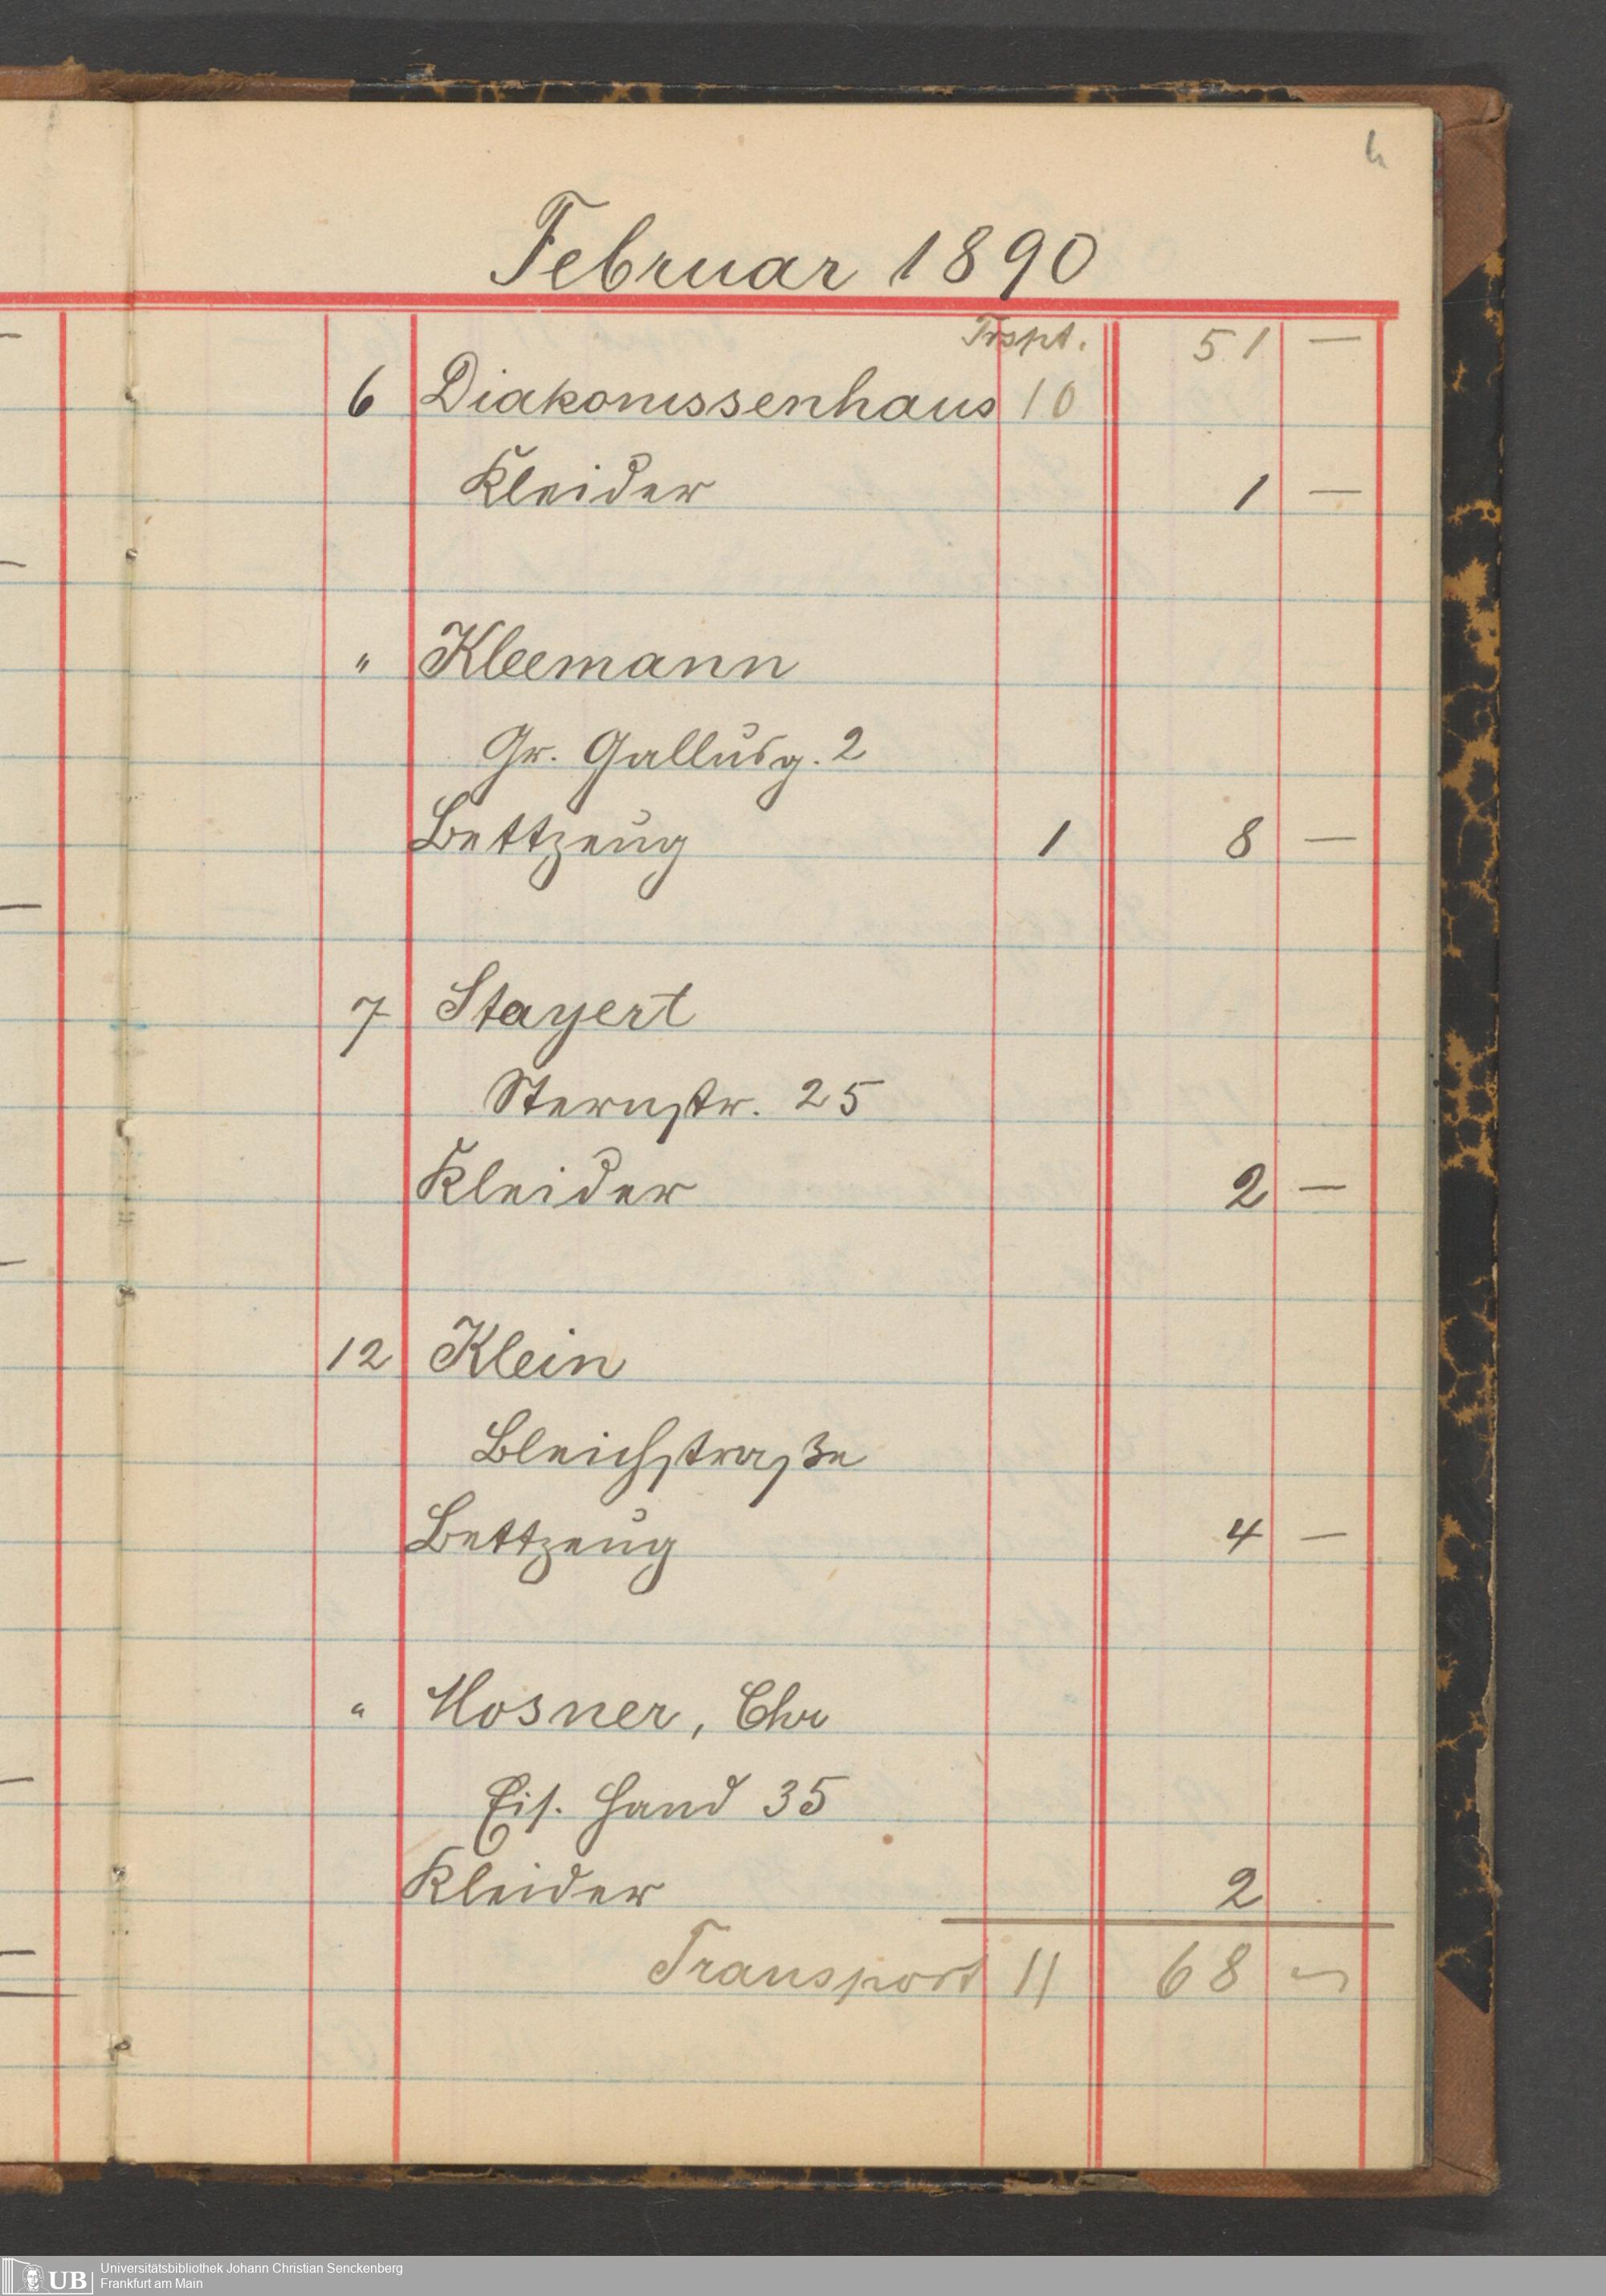 4
Februar 1890
Trspt. 51 —
6 Diakonissenhaus 10
Kleider 1 —
" Kleemann
Gr. Gallusg. 2
Bettzeug 1 8 —
7 Stayert
Sternstr. 25
Kleider 2 —
12 Klein
Bleichstraße
Bettzeug 4 —
" Hosner, Chr
Eis. Hand 35
Kleider 2
Transport 11 68 —
UB Universitätsbibliothek Johann Christian Senckenberg
Frankfurt am Main